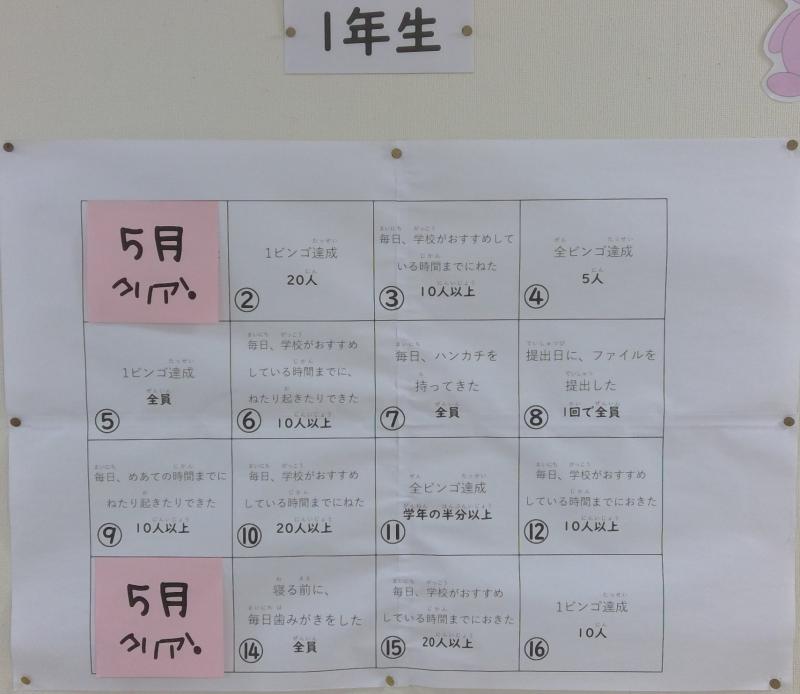 1年生
5月
クリア。
1ビンゴ達成
20人
②
毎日、学校がおすすめして
いる時間までにねた
10人以上
③
全ビンゴ達成
5人
④
1ビンゴ達成
全員
⑤
毎日、学校がおすすめ
している時間までに、
ねたり起きたりできた
10人以上
⑥
毎日、ハンカチを
持ってきた
全員
⑦
提出日に、ファイルを
提出した
1回で全員
⑧
毎日、めあての時間までに
ねたり起きたりできた
10人以上
⑨
毎日、学校がおすすめ
している時間までにねた
20人以上
⑩
全ビンゴ達成
学年の半分以上
⑪
毎日、学校がおすすめ
している時間までにおきた
10人以上
⑫
5月
クリア。
寝る前に、
毎日歯みがきをした
全員
⑭
毎日、学校がおすすめ
している時間までにおきた
20人以上
⑮
1ビンゴ達成
10人
⑯